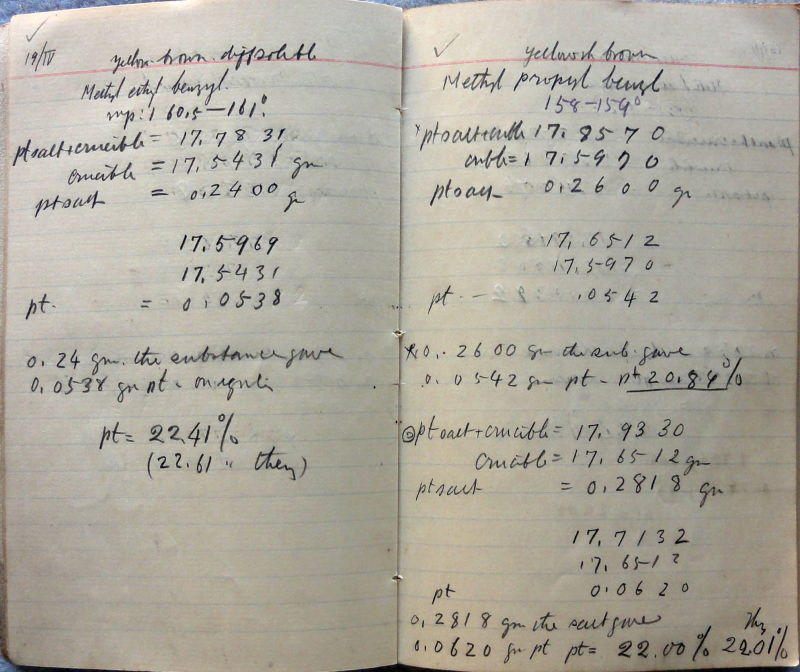 19/IV
yellow brown. diff soluble
Methyl ethyl benzyl.
mp: 160.5-161°.
pt salt + crucible = 17.7831
crucible = 17.5431 gm
pt salt = 0.2400 gr
17.5969
17.5431
pt. = 0.0538
0.24 gm. the substance gave
0.0538 gm pt
pt = 22.41%
(22.61 " they)
yellowish brown
Methyl propyl benzyl
158-159°
pt salt + crucible 17.8570
crucible = 17.5970
pt salt 0.2600 gr
17.6512
17.5970
pt - .0542
0.2600 gm the sub. gave
0.0542 gm pt - pt 20.84%
② pt salt + crucible = 17.9330
crucible = 17.6512 gm
pt salt = 0.2818 gm
17.7132
17.6512
pt 0.0620
0.2818 gm the salt gave
0.0620 gm pt pt = 22.00% They 22.01%